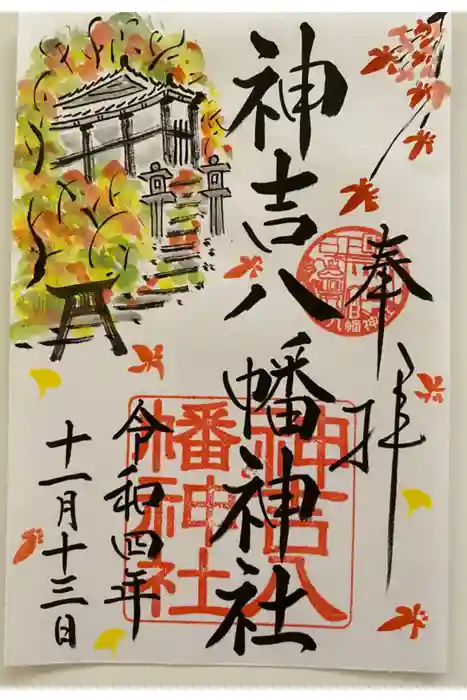 奉拝
神吉八幡神社
令和四年
十一月十三日
神吉八
幡神社
八幡神